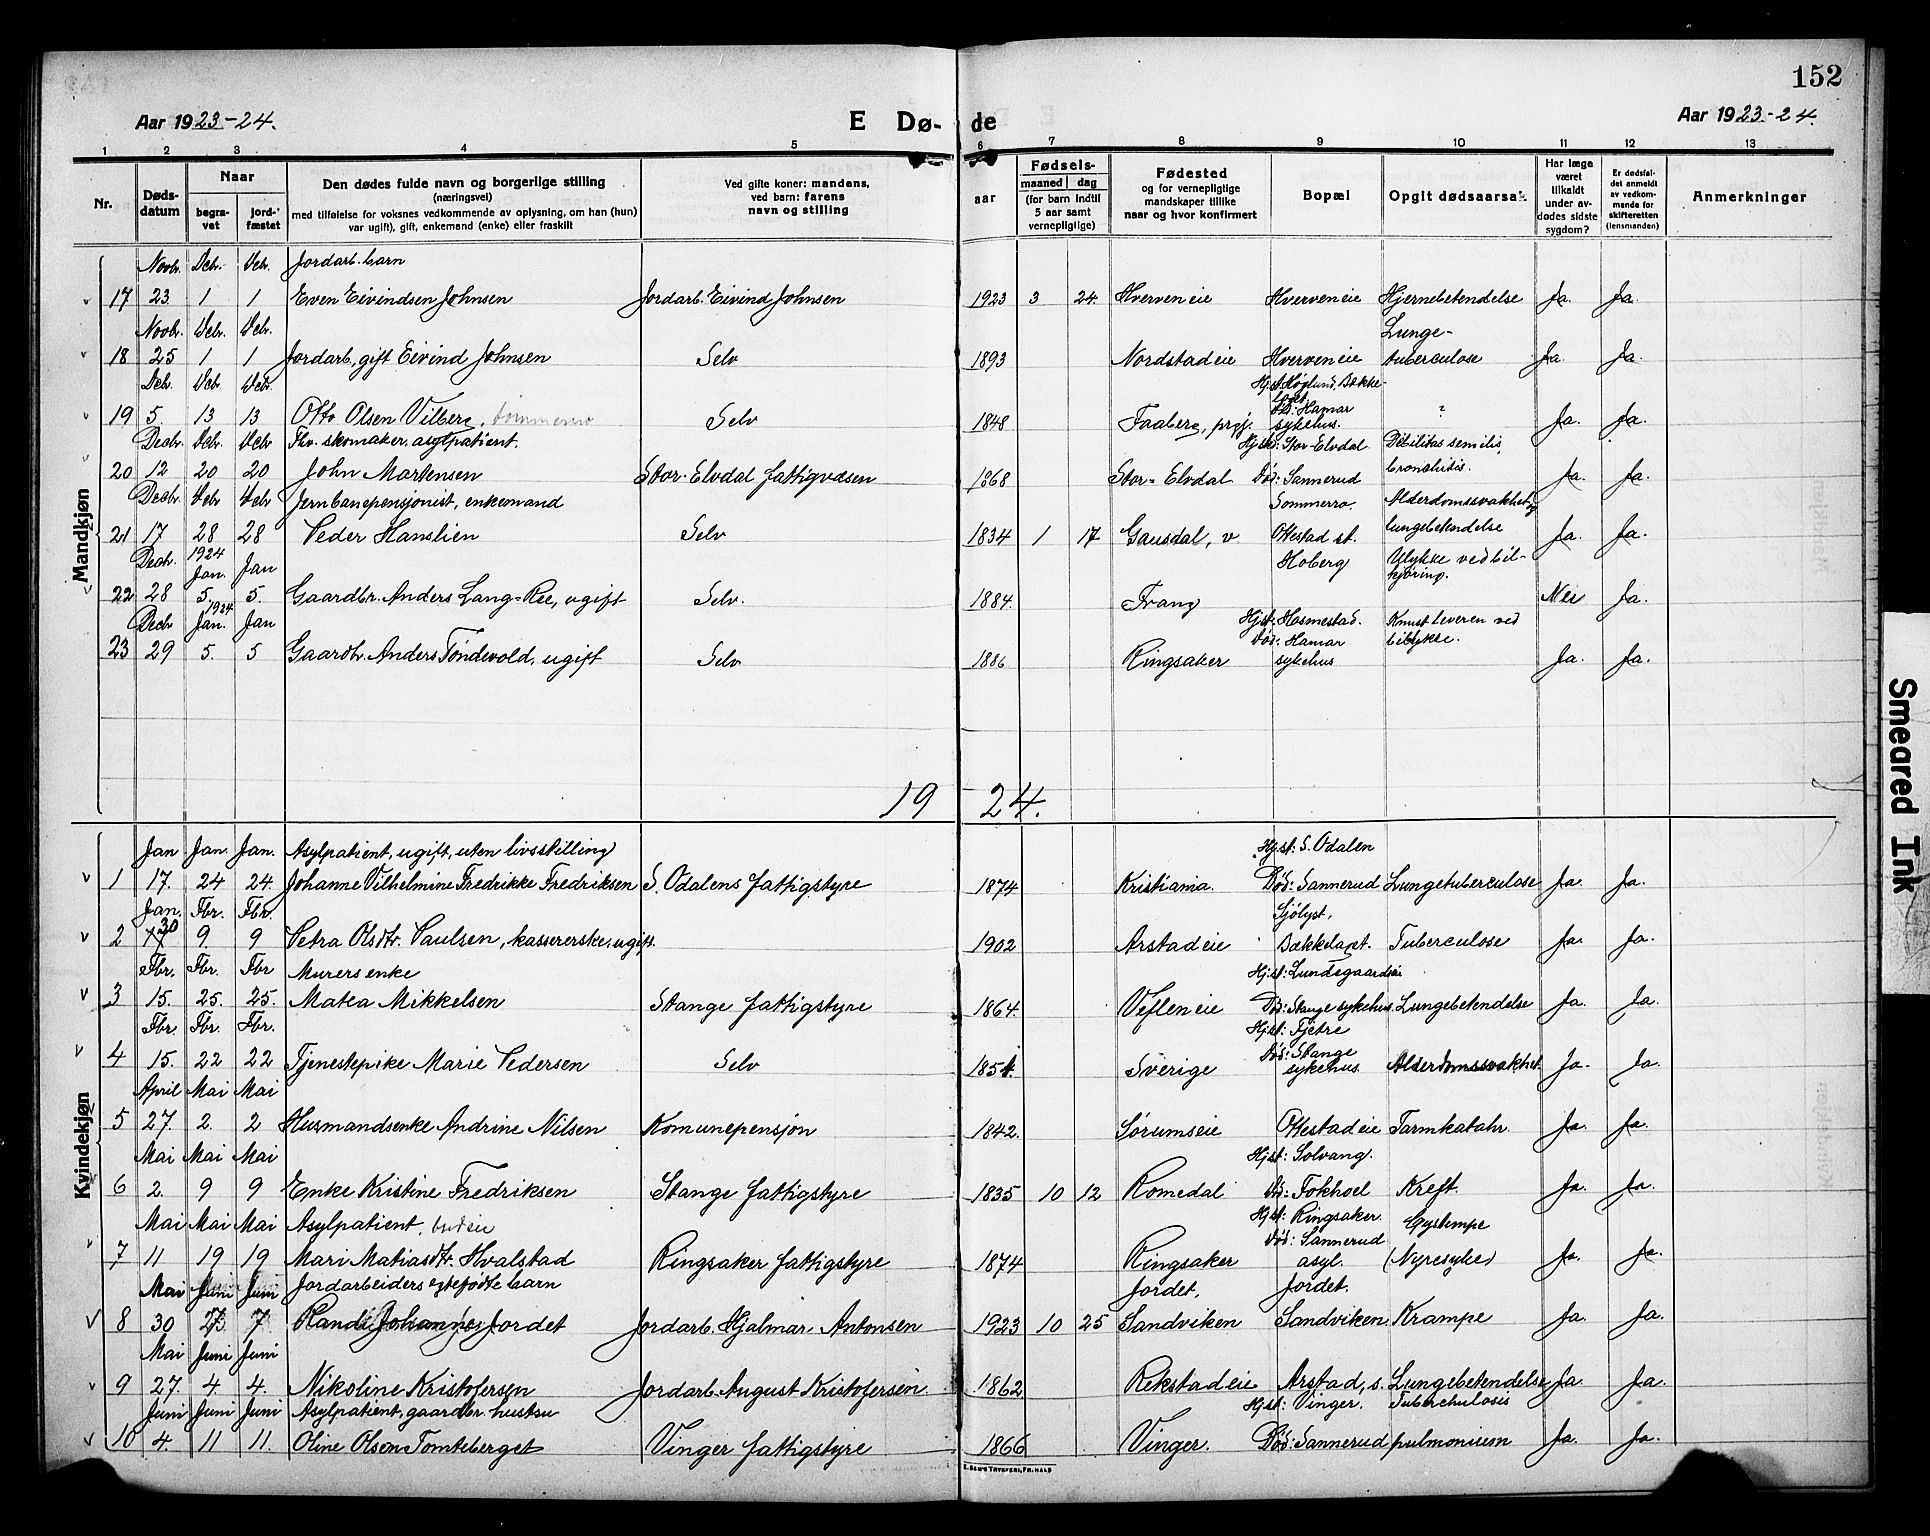 152
Aar 1923-24. E Dø- de Aar 1923-24.
1 2 3 4 5 6 7 8 9 10 11 12 13
Nr. Døds-datum Naar begra-vet jord-fæstet Den dødes fulde navn og borgerlige stilling (næringsvei) med tilføielse for voksnes vedkommende av oplysning, om han (hun) var ugift), gift, enkemand (enke) eller fraskilt Ved gifte koner: mandens, ved barn: farens navn og stilling aar Fødsels- maaned dag (for barn indtil 5 aar samt vernepligtige) Fødested og for vernepligtige mandskaper tillike naar og hvor konfirmert Bopæl Opgit dødsaarsak Har læge været tilkaldt under av-dødes sidste sygdom? Er dødsfal-det anmeldt av vedkom-mende for skifteretten (lensmanden) Anmerkninger
Mandkjøn
Novbr. Debr. Debr. Jordarb. barn
17 23 1 1 Even Eivindsen Johnsen Jordarb. Eivind Johnsen 1923 3 24 Hverven eie Hverven eie Hjernebetendelse Ja. Ja.
Novbr. Debr. Debr. Lunge-
18 25 1 1 Jordarb., gift Eivind Johnsen Selv 1893 Nordstad eie Hverven eie tuberculose Ja Ja.
Debr. Debr. Debr. Hjst. Høglund, Bække-
laget
19 5 13 13 Otto Olsen Vilberg, tømmerm Selv 1848 Faaberg, prgj. Død: Hamar sykehus. ? Ja. Ja.
Decbr. Debr. Debr Fhv. skomaker, asylpatient. Hjst: Stor-Elvdal Debilitas semilis,
20 12 20 20 John Martensen Stor-Elvdal fattigvæsen 1868 Stor-Elvdal Død: Sannerud bronshitis. Ja. Ja.
Decbr. Debr Debr Jernbanepensjonist, enkemand Sommerro. Alderdomssvakhet og
21 17 28 28 Peder Hanslien Selv 1834 1 17 Gausdal, v. Ottestad st. lungebetendelse Ja. Ja.
Decbr. 1924 Jan. Jan Hoberg Ulykke ved bil-
kjøring.
22 28 5. 5. Gaardbr. Anders Lang-Ree, ugift Selv. 1884. Frang Nei Ja.
Decbr 1924 Jan. Jan Hjst: Hosmestad. Knust leveren ved
23 29 5. 5 Gaardbr. Anders Tøndevold, ugift Selv 1886 Ringsaker Død: Hamar sykehus bilykke. Ja. Ja.
19 24.
Kvindekjøn
Jan Jan. Jan. Asylpatient, ugift, uten livsstilling Hjst: S. Odalen
1 17. 24 24. Johanne Vilhelmine Fredrikke Fredriksen S. Odalens fattigstyre 1874 Kristiania. Død: Sannerud Lungetuberculose Ja. Ja.
Jan. Fbr. Fbr. Sjölyst,
2 30 9. 9 Petra Olsdtr. Paulsen, kassererske, ugift. 1902 Arstad eie Bækkelaget. Tuberculose Ja. Ja.
Fbr. Fbr. Fbr Murers enke Hjst: Lundsgaardeie
3 15. 25. 25. Matea Mikkelsen Stange fattigstyre 1864. Veflen eie Dø: Stange sykehus. Lungebetendelse Ja. Ja.
Fbr. Fbr. Fbr. Hjst: Tjetre
4 15. 22 22 Tjenestepike Marie Pedersen Selv 1854. Sverige Død: Stange sykehus. Alderdomssvakhet Ja. Ja.
April Mai Mai
5 27. 2. 2 Husmandsenke Andrine Nilsen Komunepensjon 1842. Sørumseie Ottestad eie Tarmkatahr. Ja. Ja.
Mai Mai Mai Hjst: Solvang.
6 2. 9 9 Enke Kristine Fredriksen Stange fattigstyre 1835 10 12 Romedal Død: Fokhoel Kreft. Ja. Ja.
Mai Mai Mai Asylpatient, Hjst: Ringsaker.
7 11 19 19 Mari Matiasdtr. Hvalstad Ringsaker fattigstyre 1874 Ringsaker Død: Sannerud asyl. (Nyresyke) Ja. Ja.
Mai Juni Juni Jordarbeiders egtefødte barn Jordet, Jordet.
8 30 7 7 Randi Johannes Jordet Jordarb. Hjalmar Antonsen 1923 10 25 Sandviken Sandviken. Krampe Ja. Ja.
Mai Juni Juni
9 27. 4. 4. Nikoline Kristofersen Jordarb. August Kristofersen 1862 Rekstad eie Arstad, s. Lungebetendelse Ja. Ja.
Juni Juni Juni Asylpatient, gaardbr. hustru Hjst: Vinger. Tuberchulosis
10 4. 11 11. Oline Olsen Tomteberget Vinger fattigstyre 1866 Vinger. Død: Sannerud pulmonium Ja. Ja.
Smeared Ink